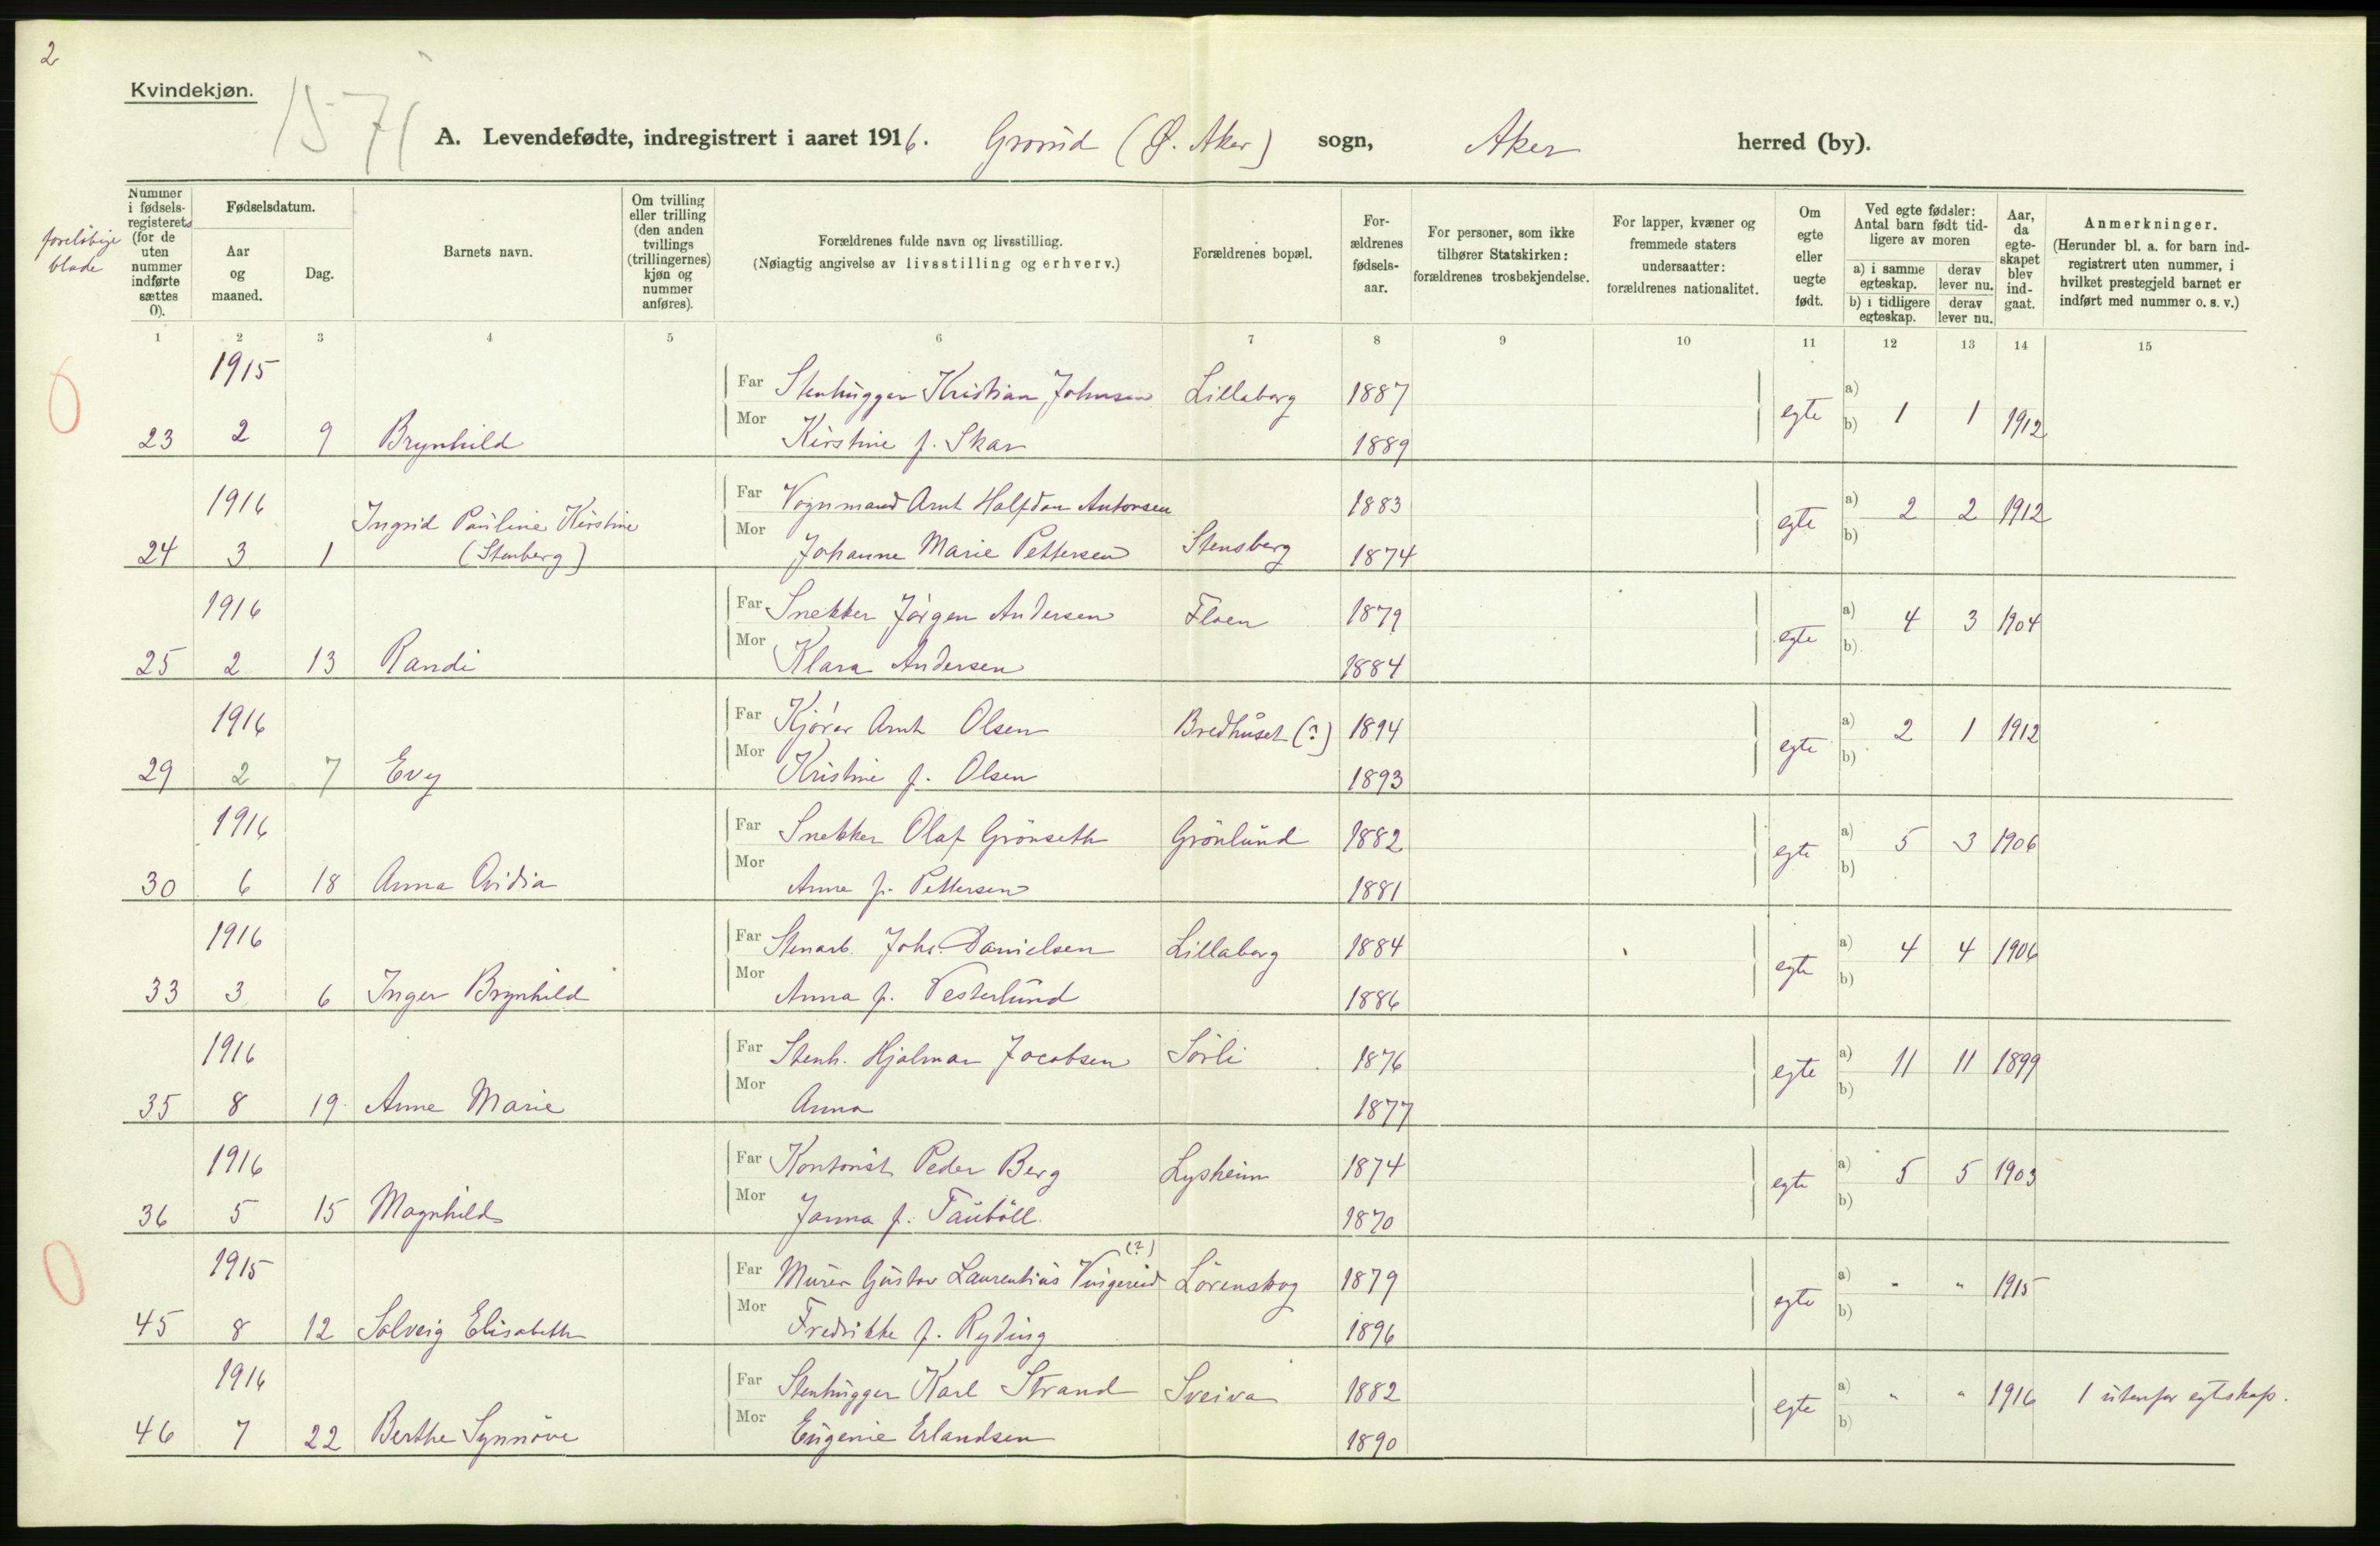 2
Kvindekjøn.
1571
A. Levendefødte, indregistrert i aaret 1916. Grorud (Ø. Aker) sogn, Aker herred (by).
foreløbige blade
Nummer i fødselsregisterets (for de uten nummer indførte sættes 0).
Fødselsdatum.
Aar og maaned.
Dag.
Barnets navn.
Om tvilling eller trilling (den anden tvillings (trillingernes) kjøn og nummer anføres).
Forældrenes fulde navn og livsstilling.
(Nøiagtig angivelse av livsstilling og erhverv.)
Forældrenes bopæl.
Forældrenes fødselsaar.
For personer, som ikke tilhører Statskirken: forældrenes trosbekjendelse.
For lapper, kvæner og fremmede staters undersaatter: forældrenes nationalitet.
Om egte eller uegte født.
Ved egte fødsler: Antal barn født tidligere av moren
a) i samme egteskap.
derav lever nu.
b) i tidligere egteskap.
derav lever nu.
Aar, da egteskapet blev indgaat.
Anmerkninger.
(Herunder bl. a. for barn indregistrert uten nummer, i hvilket prestegjeld barnet er indført med nummer o. s. v.)
1 2 3 4 5 6 7 8 9 10 11 12 13 14 15
1915 Far Stenhugger Kristian Johnsen Lillaberg 1887 a)
0 23 2 9 Brynhild Mor Kirstine f. Skar 1889 egte b) 1 1 1912
1916 Ingrid Pauline Kirstine Far Vognmand Arnt Halfdan Antonsen 1883 a) 2 2 1912
24 3 1 (Stenberg) Mor Johanne Marie Pettersen Stensberg 1874 egte b)
1916 Far Snekker Jörgen Andersen Floen 1879 a) 4 3 1904
25 2 13 Randi Mor Klara Andersen 1884 egte b)
1916 Far Kjörer Arnt Olsen Bredhuset (?) 1894 a) 2 1 1912
29 2 7 Evy Mor Kristine f. Olsen 1893 egte b)
1916 Far Snekker Olaf Grönseth Grönlund 1882 a) 5 3 1906
30 6 18 Anna Ovidia Mor Anne f. Pettersen 1881 egte b)
1916 Far Stenarb. Johs. Danielsen Lillaberg 1884 a) 4 4 1906
33 3 6 Inger Brynhild Mor Anna f. Vesterlund 1886 egte b)
1916 Far Stenh. Hjalmar Jacobsen Sörli 1876 a) 11 11 1899
35 8 19 Anne Marie Mor Anna 1877 egte b)
1916 Far Kontorist Peder Berg Lysheim 1874 a) 5 5 1903
36 5 15 Magnhild Mor Janna f. Tauböll 1870 egte b)
1915 Far Murer Gustav Laurentius (?) Lörenskog 1879 a) " " 1915
0 45 8 12 Solveig Elisabeth Mor Fredrikke f. Ryding 1896 egte b)
1916 Far Stenhugger Karl Strand Sveiva 1882 a) " " 1916 1 utenfor egteskap.
46 7 22 Berthe Synnöve Mor Eugenie Erlandsen 1890 egte b)